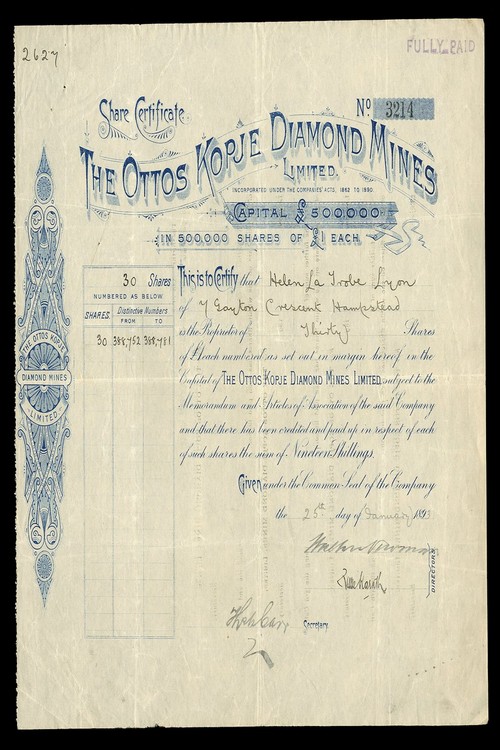 2627
FULLY PAID
Share Certificate
No 3214
THE OTTOS KOPJE DIAMOND MINES
LIMITED.
INCORPORATED UNDER THE COMPANIES' ACTS, 1862 TO 1890.
CAPITAL £500,000
IN 500,000 SHARES OF £1 EACH.
30 Shares
NUMBERED AS BELOW
SHARES. Distinctive Numbers
FROM TO
30 388,752 388,781
THE OTTOS KOPJE
DIAMOND MINES
LIMITED.
This is to Certify that Helen La Trobe Lyon
of 7 Gayton Crescent Hampstead
is the Proprietor of Thirty Shares
of £1 each numbered as set out in margin hereof in the
Capital of THE OTTOS KOPJE DIAMOND MINES LIMITED subject to the
Memorandum and Articles of Association of the said Company
and that there has been credited and paid up in respect of each
of such shares the sum of Nineteen Shillings.
Given under the Common Seal of the Company
the 25th day of January 1893
DIRECTORS
Secretary